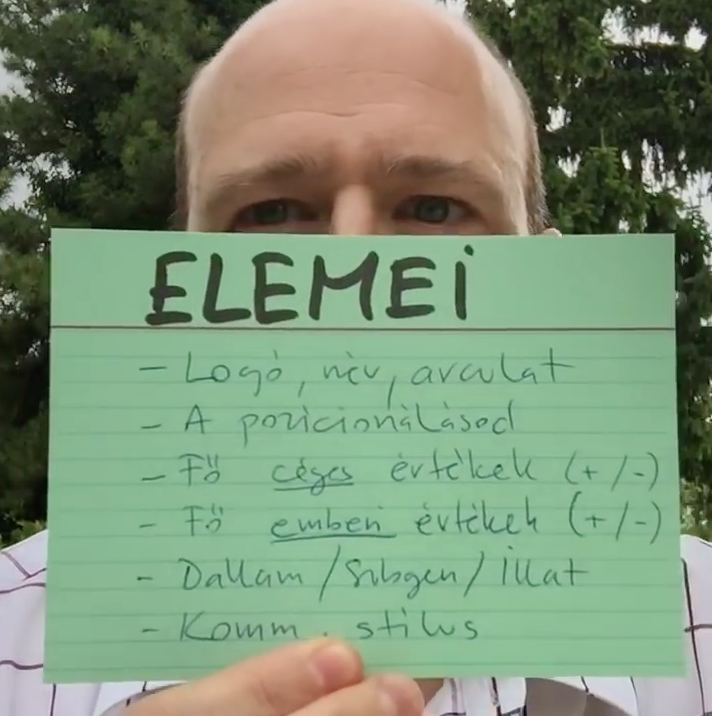 ELEMEi
- Logó, név, arculat
- A pozicionálásod
- Fő céges értékek (+/-)
- Fő emberi értékek (+/-)
- Dallam / / illat
- Komm. stílus